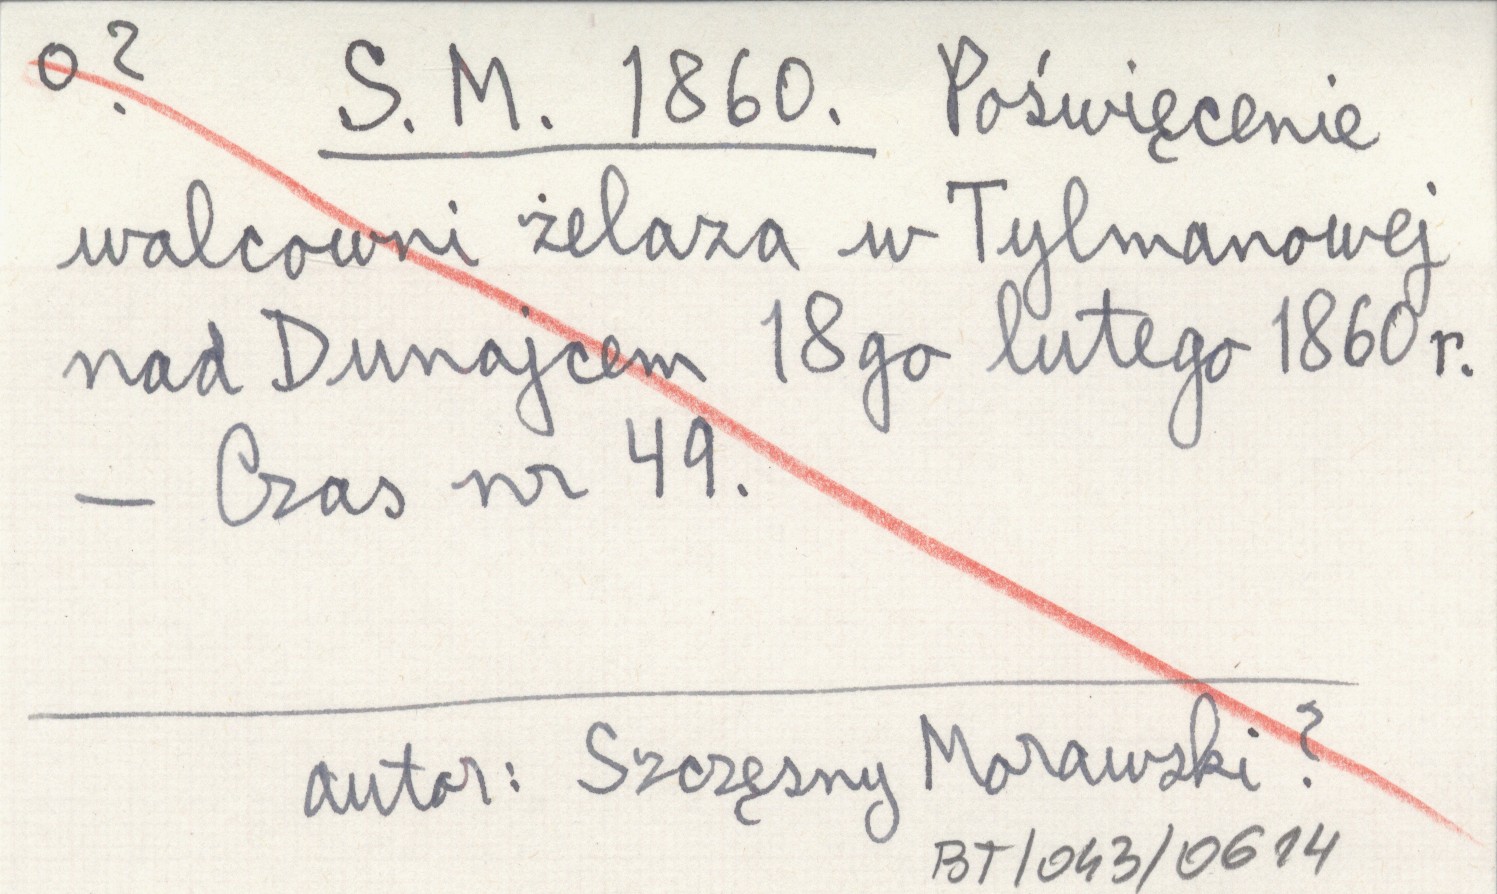 o?
S. M. 1860. Poświęcenie
walcowni żelaza w Tylmanowej
nad Dunajcem 18go lutego 1860 r.
— Czas nr 49.
autor: Szczęsny Morawski?
BT/043/0614